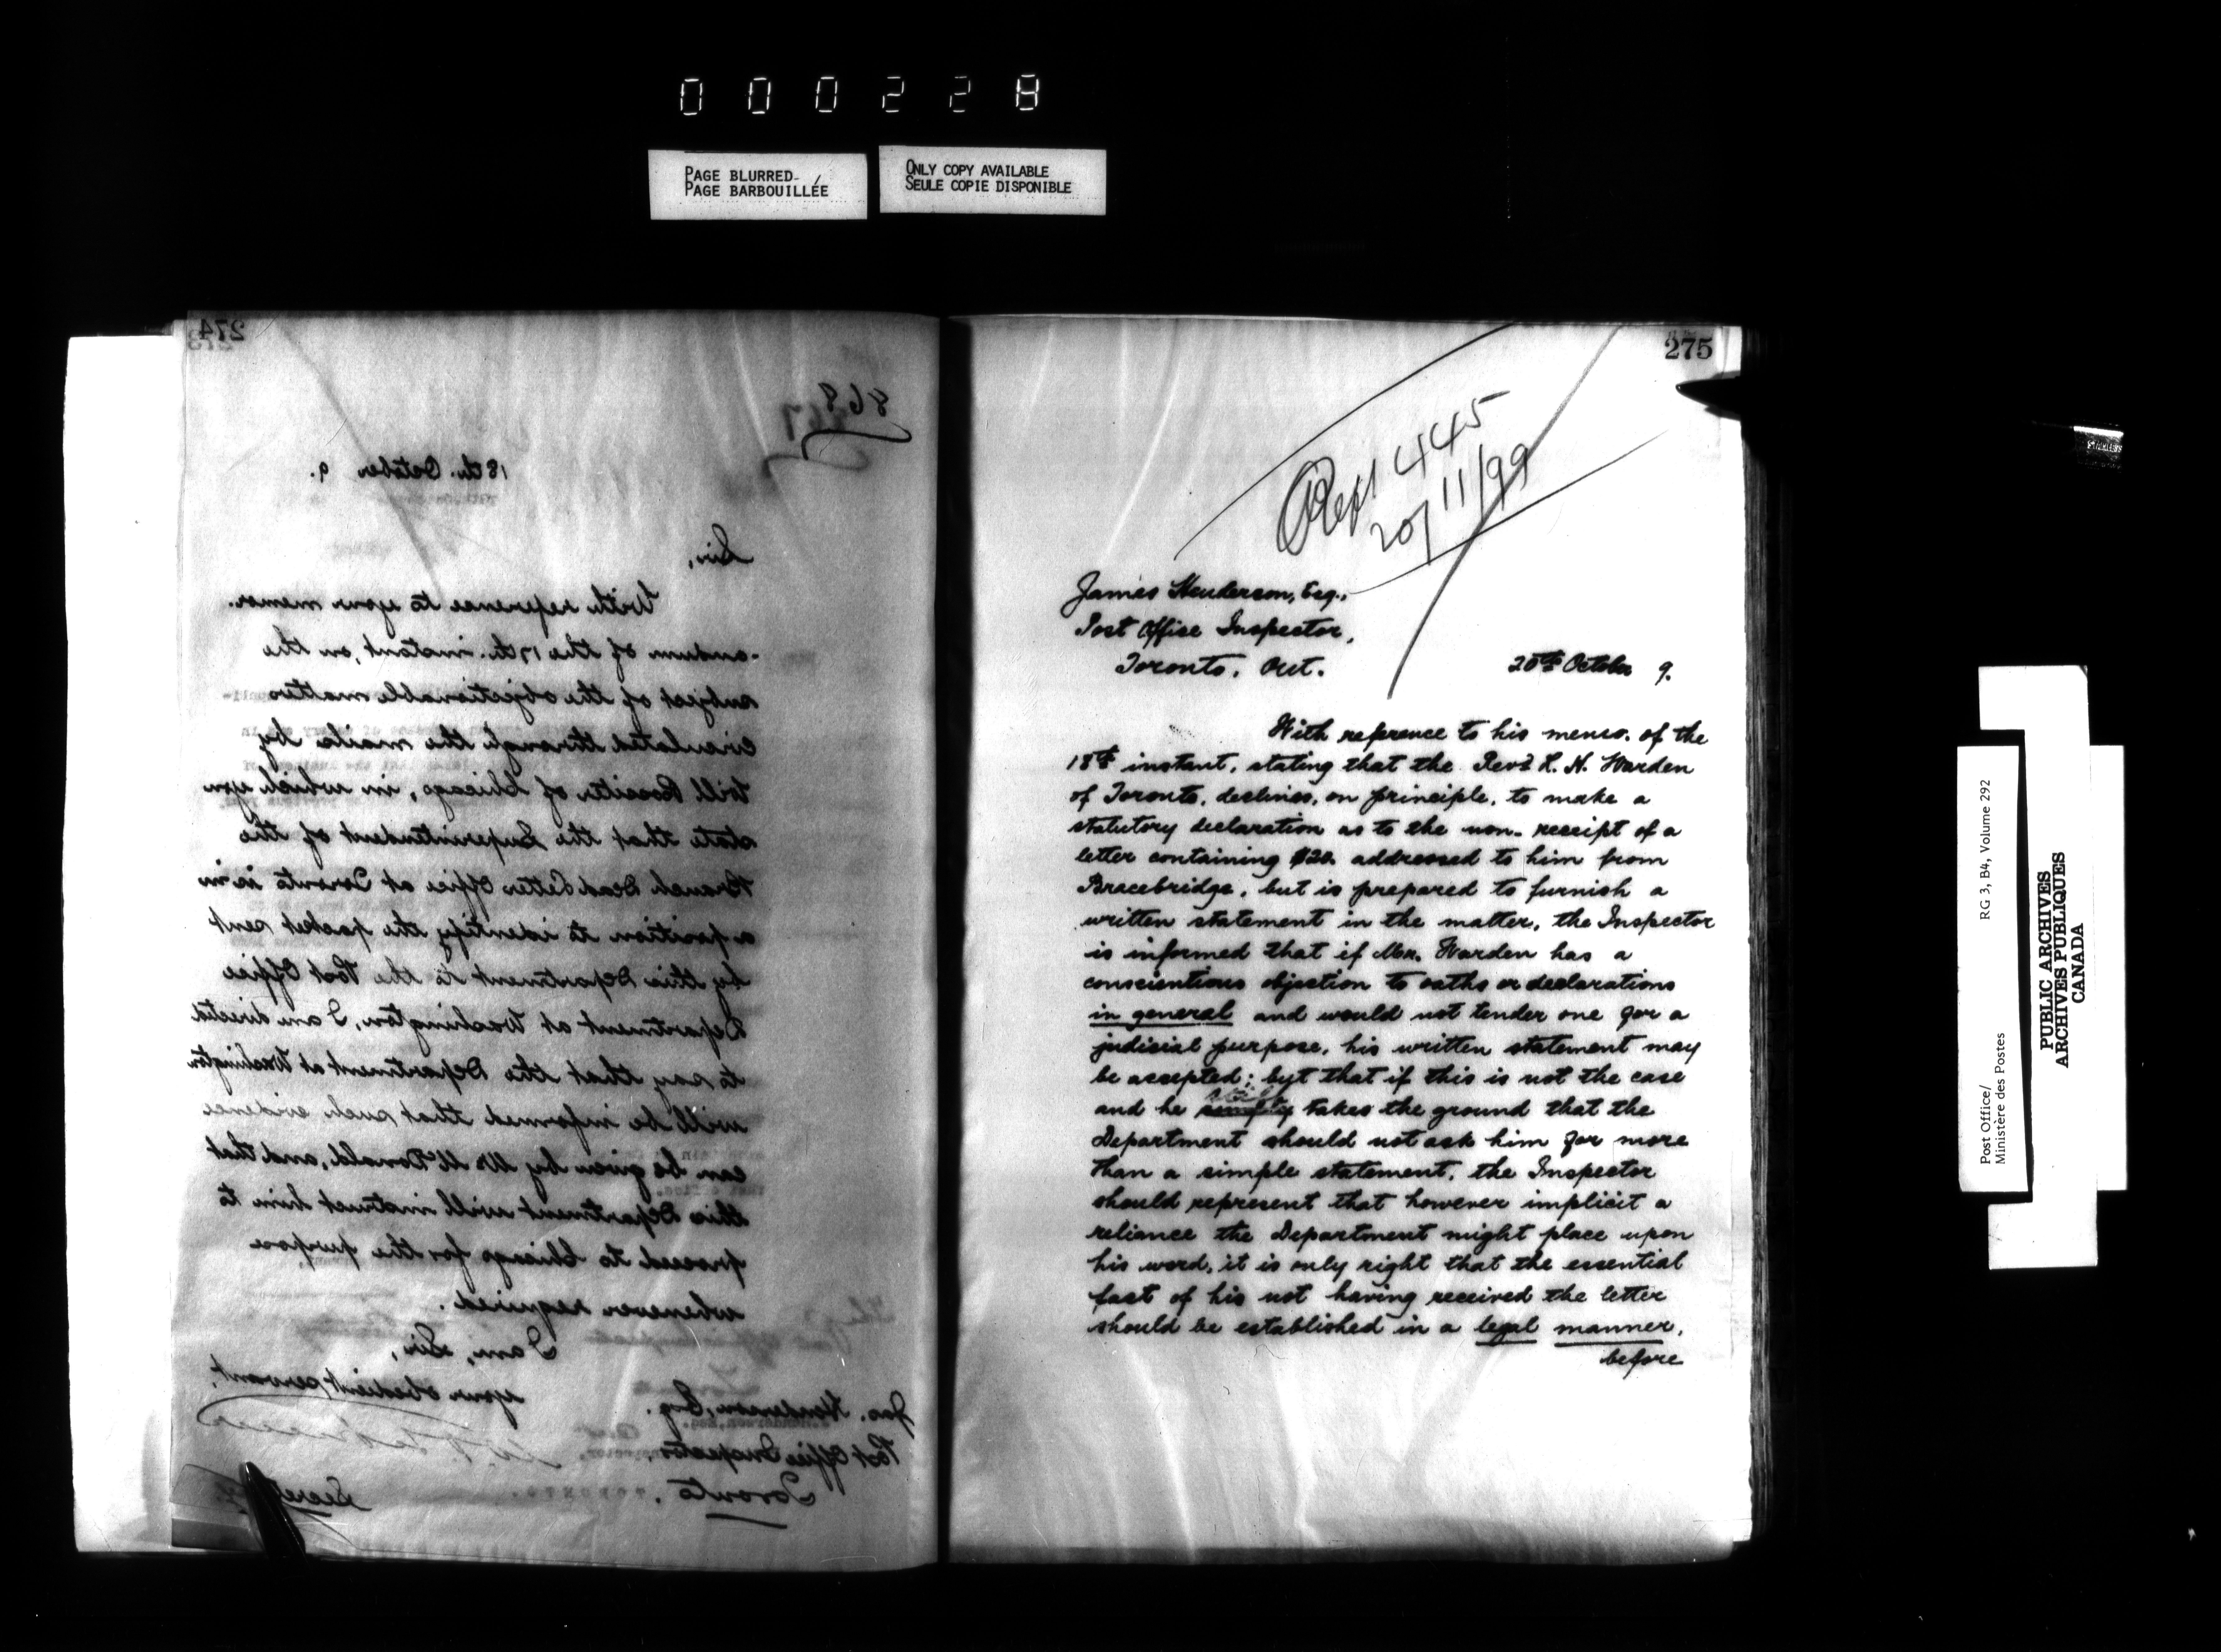 000228
PAGE BLURRED
PAGE BARBOUILLÉE
ONLY COPY AVAILABLE
SEULE COPIE DISPONIBLE
274
868
18th. October 9.
Sir,
With reference to your memor-
-andum of the 17th. instant, on the
subject of the objectionable matter
circulated through the mails by
Will Rossiter of Chicago, in which you
state that the Superintendent of the
Branch Dead Letter Office at Toronto is in
a position to identify the packet sent
by this Department to the Post Office
Department at Washington, I am directed
to say that the Department at Washington
will be informed that such evidence
can be given by Mr McDonald, and that
this Department will instruct him to
proceed to Chicago for the purpose
whenever required.
I am, Sir,
your obedient servant,
Secretary.
Jas. Henderson, Esq.
Post Office Inspector,
Toronto.
275
445
20/11/99
James Henderson, Esq.,
Post Office Inspector,
Toronto, Ont.
20th October 9.
With reference to his memo. of the
18th instant, stating that the Revd R. H. Warden
of Toronto, declines, on principle, to make a
statutory declaration as to the non-receipt of a
letter containing $20. addressed to him from
Bracebridge, but is prepared to furnish a
written statement in the matter, the Inspector
is informed that if Mr. Warden has a
conscientious objection to oaths or declarations
in general and would not tender one for a
judicial purpose, his written statement may
be accepted; byt that if this is not the case
and he simply takes the ground that the
Department should not ask him for more
than a simple statement, the Inspector
should represent that however implicit a
reliance the Department might place upon
his word, it is only right that the essential
fact of his not having received the letter
should be established in a legal manner,
before
Post Office/
Ministère des Postes
RG 3, B4, Volume 292
PUBLIC ARCHIVES
ARCHIVES PUBLIQUES
CANADA